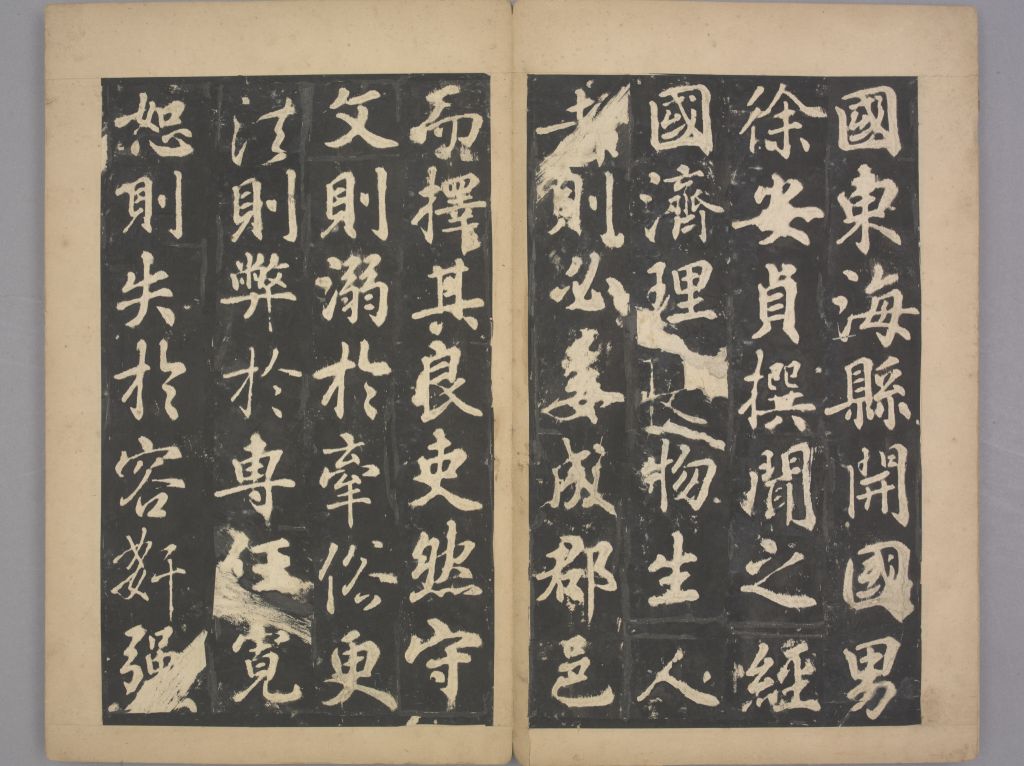 國東海縣開國男
徐安貞撰聞之經
國濟理民物生人
者則必姜成郡邑
而擇其良吏然守
文則溺於牽俗更
法則弊於專任寬
恕則失於容姧强